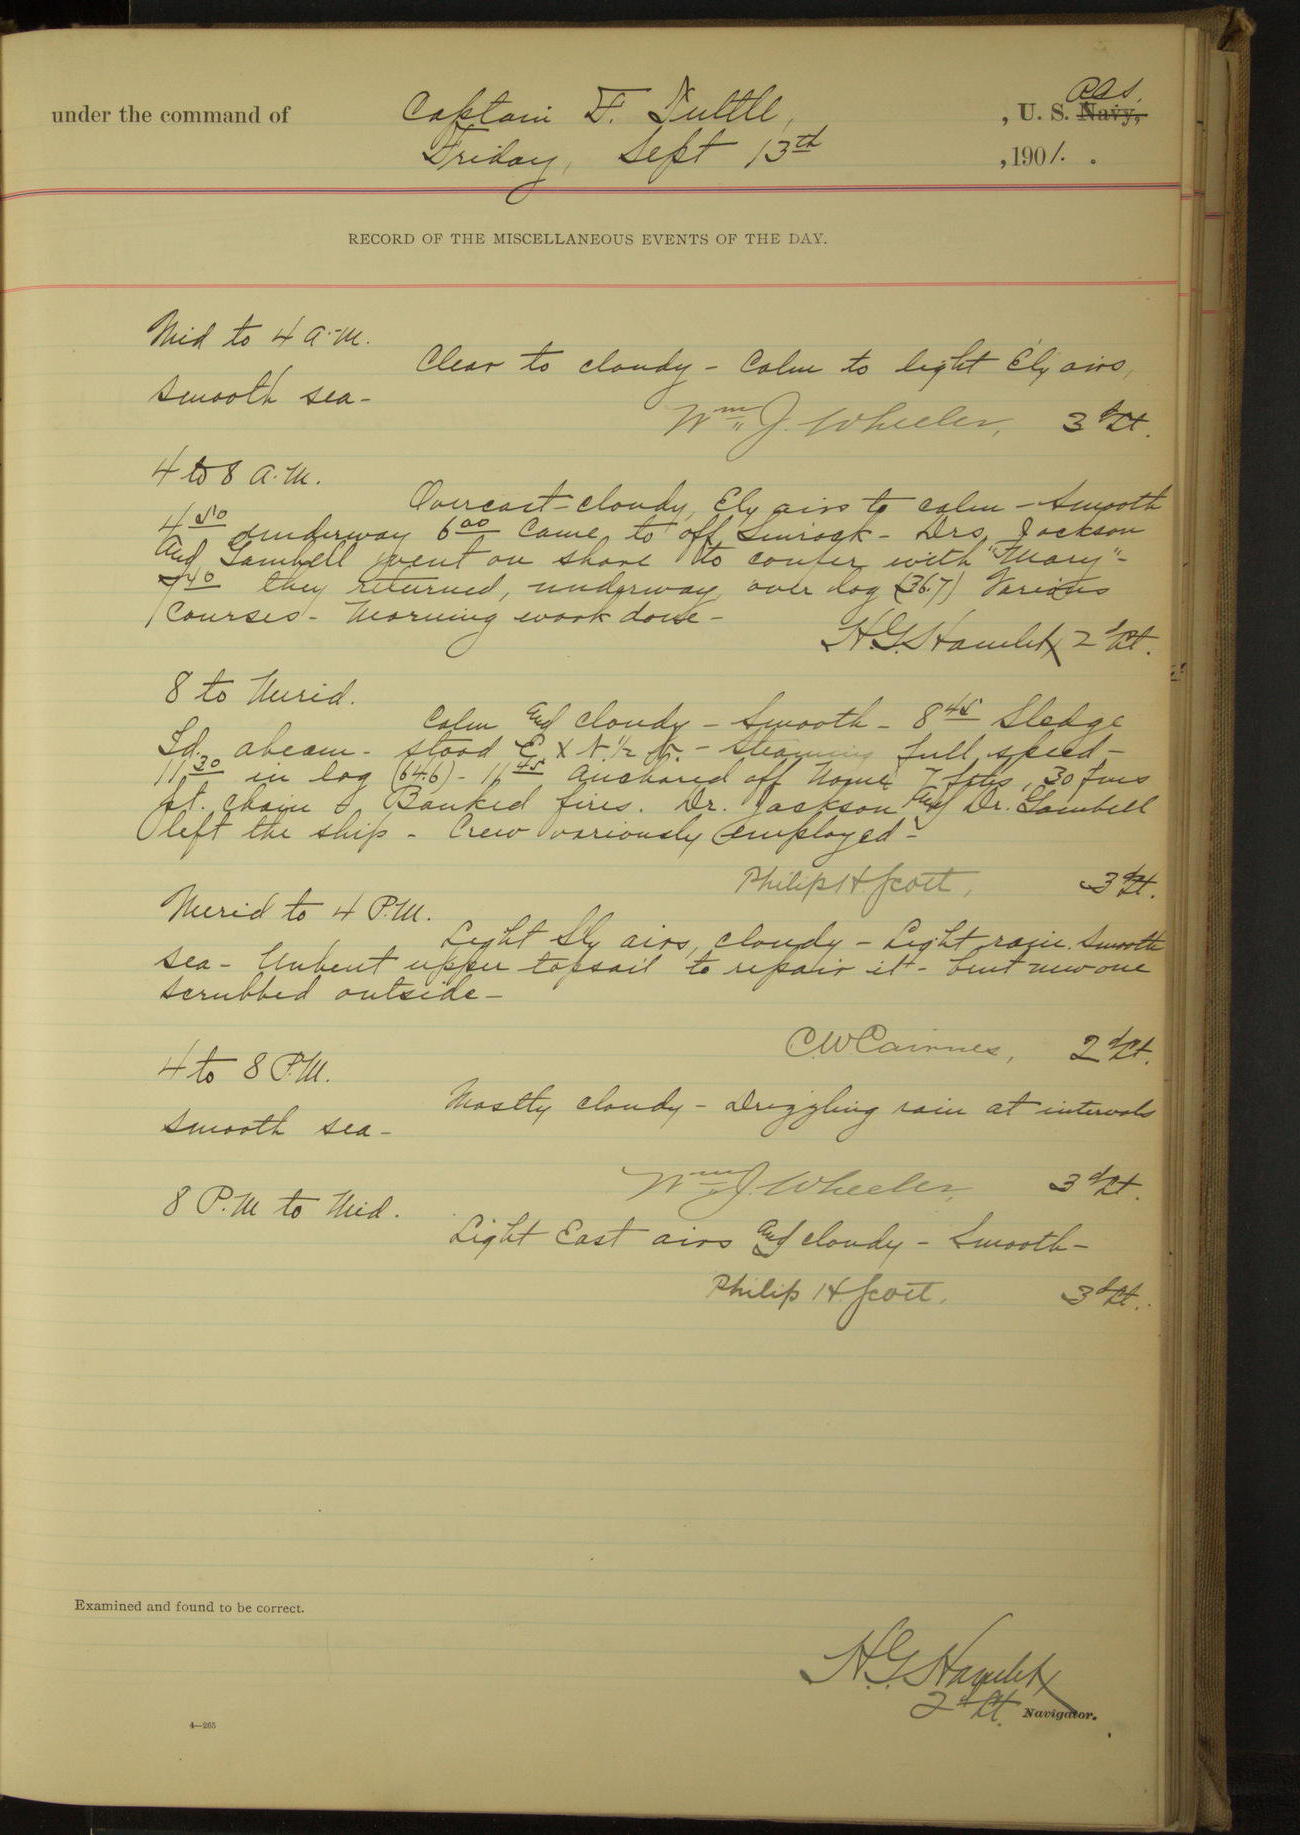 under the command of Captain F. Tuttle, , U. S. Navy, R.C.S.
Friday, Sept 13th , 1901. .
RECORD OF THE MISCELLANEOUS EVENTS OF THE DAY.
Mid to 4 A.M.
Clear to cloudy - Calm to light E'ly airs,
smooth sea -
Wm. J. Wheeler, 3d Lt.
4 to 8 A.M.
Overcast - cloudy, Ely airs to calm - Smooth
4 50 underway 6 00 Came to off Sinrock - Drs. Jackson
and Gambell went on shore to confer with "Mary" -
7 40 they returned, underway, over log (36.7) Various
Courses - Morning work done -
H.G. Hamlet 2d Lt.
8 to Merid.
Calm and cloudy - Smooth - 8 45 Sledge
Id. abeam - stood E x N. 1/2 N. - Steaming full speed -
11 30 in log (64.6) - 11 45 Anchored off Nome 7 fms, 30 fms
st. chain. Banked fires. Dr. Jackson and Dr. Gambell
left the ship - Crew variously employed -
Philip H. Scott, 3d Lt.
Merid to 4 P.M.
Light Sly airs, cloudy - Light rain. Smooth
sea - Unbent upper topsail to repair it - bent new one
scrubbed outside -
C.W. Cairnes, 2d Lt.
4 to 8 P.M.
Mostly cloudy - Drizzling rain at intervals
smooth sea -
Wm. J. Wheeler, 3d Lt.
8 P.M to Mid.
Light East airs and cloudy - Smooth -
Philip H. Scott. 3d Lt.
Examined and found to be correct.
H.G. Hamlet
2d Lt. Navigator.
4—265